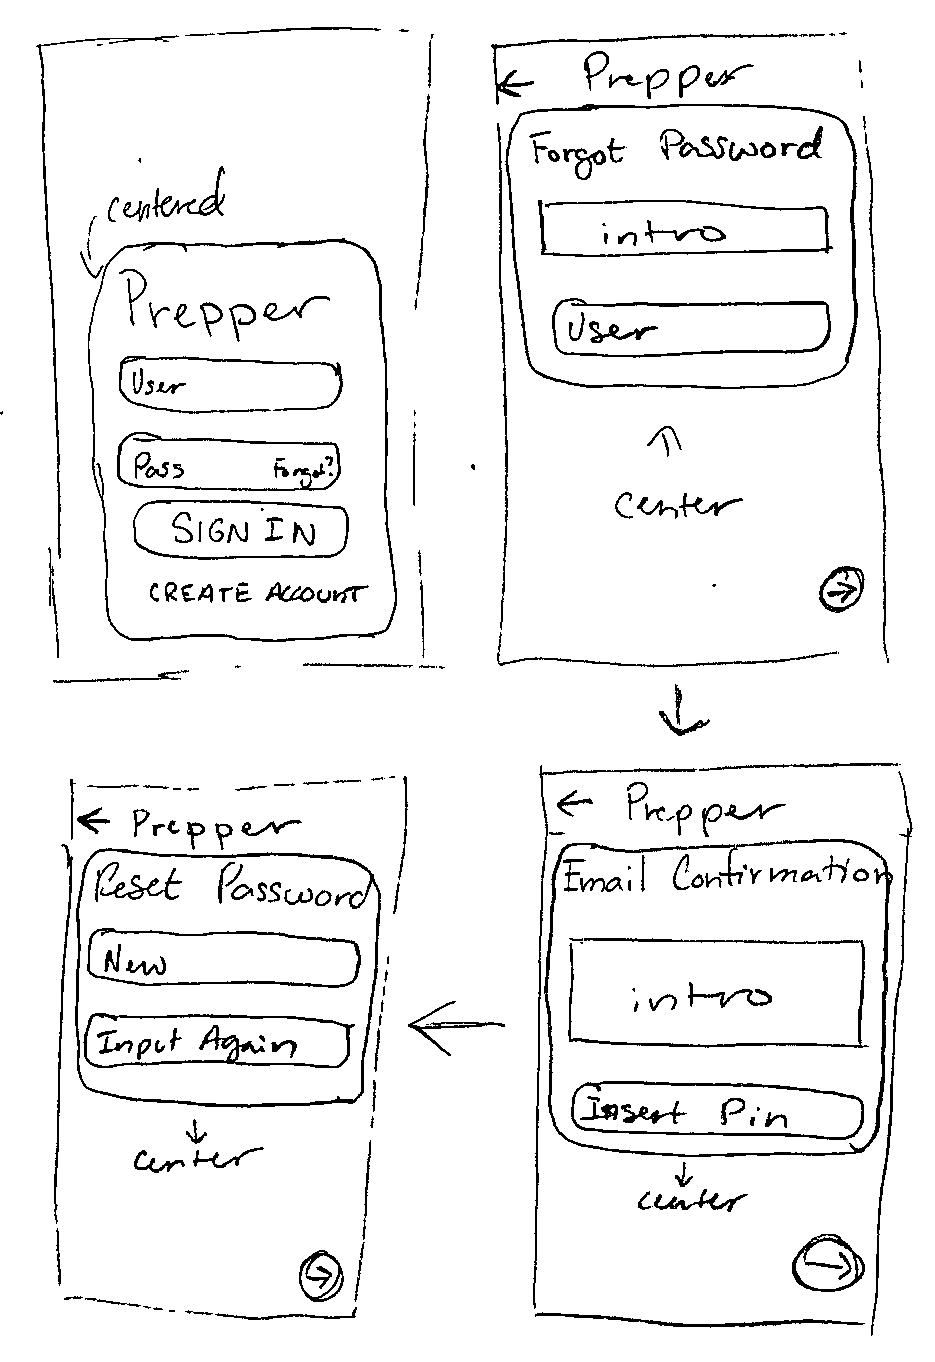 centered
Prepper
User
Pass Forgot?
SIGN IN
CREATE ACCOUNT
Prepper
Forgot Password
intro
User
center
Prepper
Email Confirmation
intro
Insert Pin
center
Prepper
Reset Password
New
Input Again
center